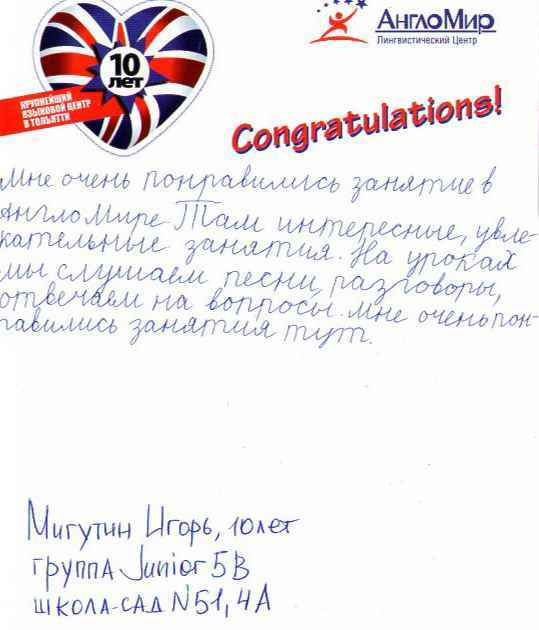 10
лет
КРУПНЕЙШИЙ
ЯЗЫКОВОЙ ЦЕНТР
В ТОЛЬЯТТИ
АнглоМир
Лингвистический Центр
Congratulations!
Мне очень понравились занятие в
АнглоМире. Там интересные, увле-
кательные занятия. На уроках
мы слушаем песни, разговоры,
отвечаем на вопросы. Мне очень пон-
равились занятия тут.
Мигутин Игорь, 10 лет
группа Junior 5B
школа-сад N51, 4А